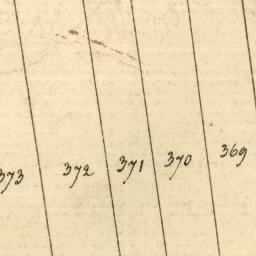 373 372 371 370 369